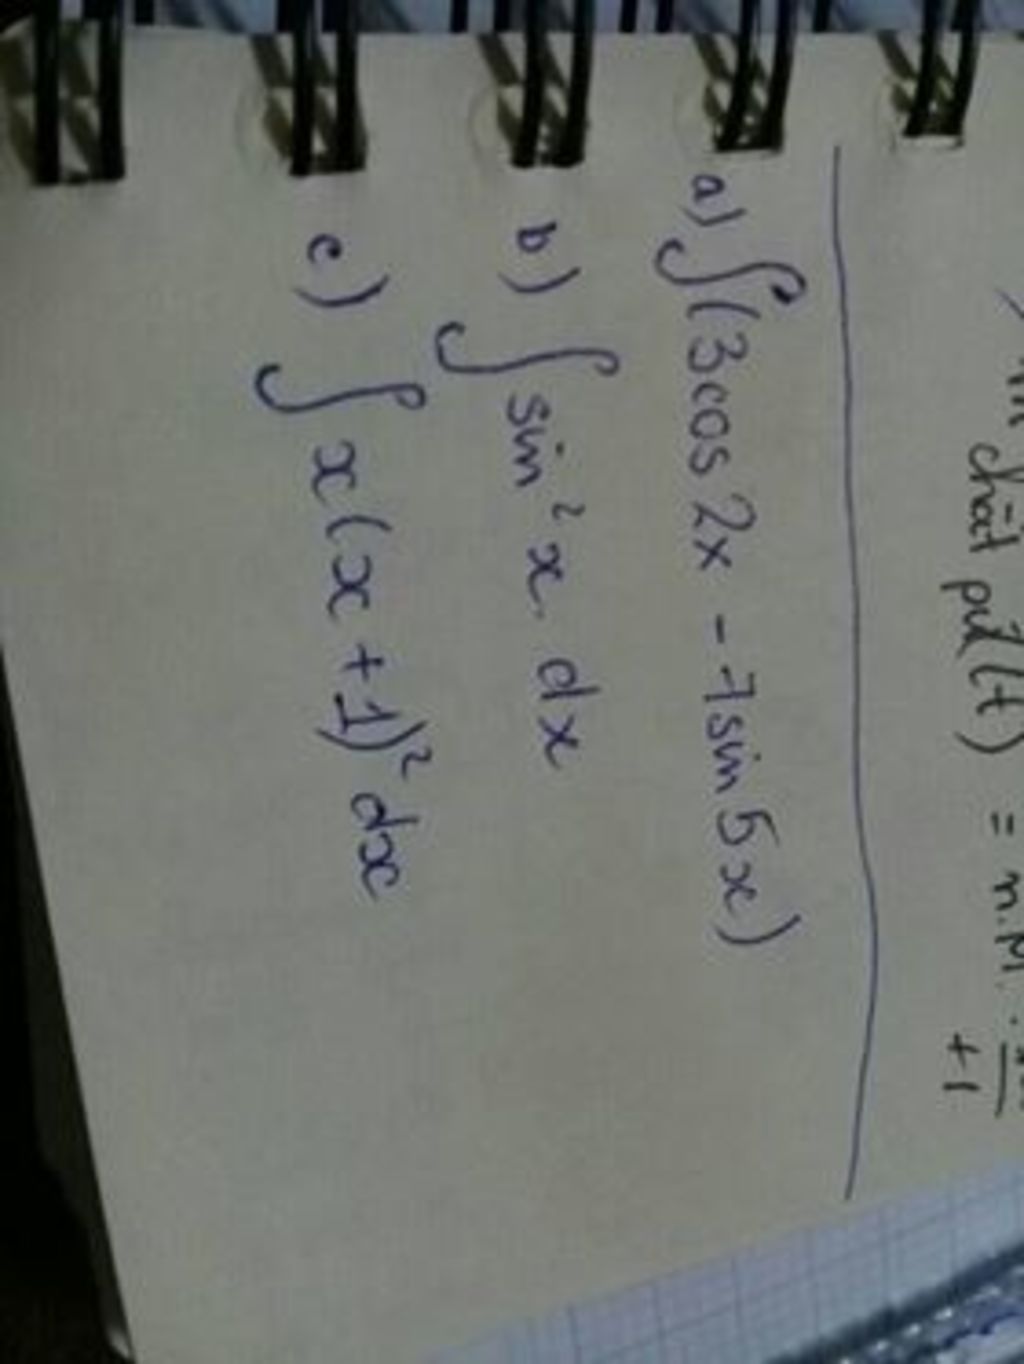 chất
= n.M.
+1
a) ∫(3cos 2x - 7sin 5x)
b) ∫ sin²x. dx
c) ∫ x(x +1)² dx